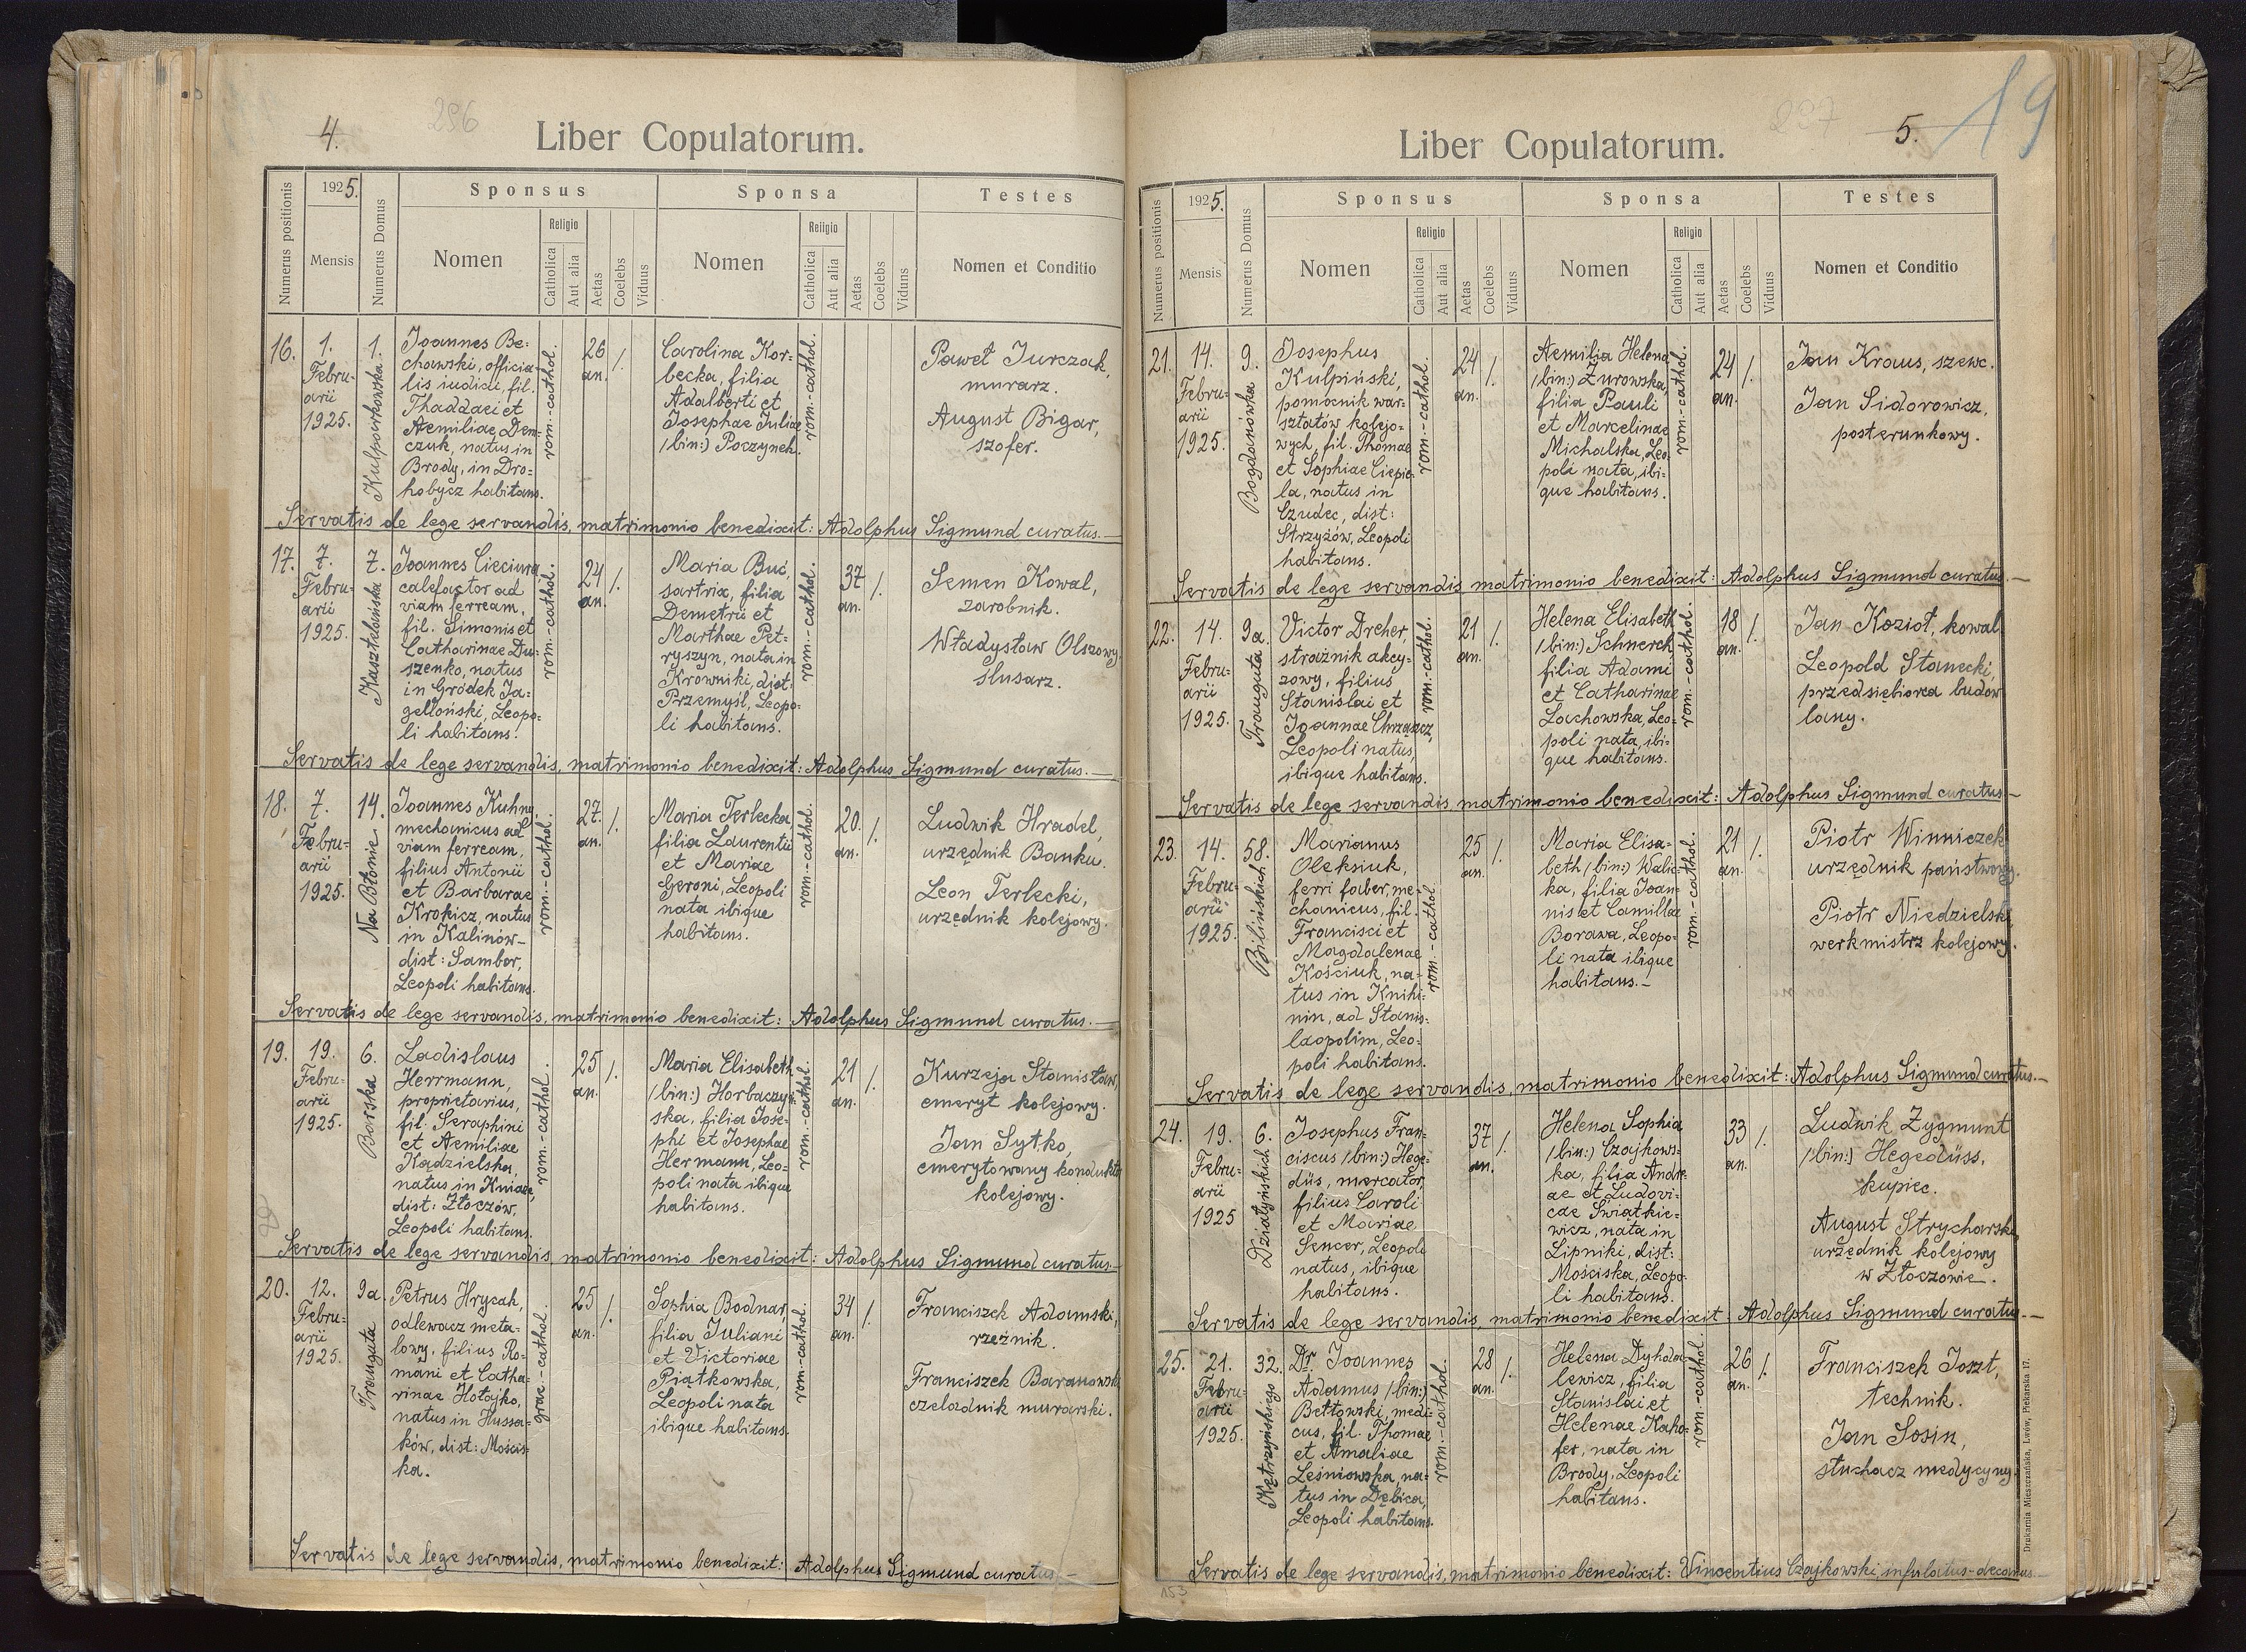 4.
296
Liber Copulatorum.
Numerus positionis
1925.
Mensis
Numerus Domus
Sponsus
Nomen
Religio
Catholica
Aut alia
Aetas
Coelebs
Viduus
Sponsa
Nomen
Religio
Catholica
Aut alia
Aetas
Coelebs
Viduus
Testes
Nomen et Conditio
16.
1.
Febru-
arii
1925.
1.
Kulparkowska.
Joannes Be-
chowski, officia-
lis iudicii, fil.
Thaddaei et
Aemiliae Dem-
czuk, natus in
Brody, in Dro-
hobycz habitans.
rom.-cathol.
26
an.
/.
Carolina Kor-
becka, filia
Adalberti et
Josephae Juliae
/bin:) Poczynek.
rom.-cathol.
Paweł Jurczak,
murarz.
August Bigar,
szofer.
Servatis de lege servandis, matrimonio benedixit: Adolphus Sigmund curatus.—
17.
7.
Febru-
arii
1925.
7.
Kasztelańska
Joannes Cieciura,
calefactor ad
viam ferream,
fil. Simonis et
Catharinae Du-
szenko, natus
in Gródek Ja-
gelloński, Leopo-
li habitans.
rom.-cathol.
24
an.
/.
Maria Buć,
sartrix, filia
Demetrii et
Marthae Pet-
ryszyn, nata in
Krowniki, dist.
Przemyśl, Leopo-
li habitans.
rom.-cathol.
37
an.
/.
Semen Kowal,
zarobnik.
Władysław Olszowy,
ślusarz.
Servatis de lege servandis, matrimonio benedixit: Adolphus Sigmund curatus.—
18.
7.
Febru-
arii
1925.
14.
Na Błonie
Joannes Kuhny
mechanicus ad
viam ferream,
filius Antonii
et Barbarae
Krokicz, natus
in Kalinów-
dist: Sambor,
Leopoli habitans.
rom.-cathol.
27.
an.
/.
Maria Terlecka,
filia Laurentii
et Mariae
Geroni, Leopoli
nata ibique
habitans.
rom.-cathol.
20.
an.
/.
Ludwik Hradel,
urzędnik Banku.
Leon Terlecki,
urzędnik kolejowy.
Servatis de lege servandis, matrimonio benedixit: Adolphus Sigmund curatus.—
19.
19.
Febru-
arii
1925.
6.
Borska
Ladislaus
Herrmann,
proprietarius,
fil. Seraphini
et Aemiliae
Kadzielska,
natus in Kniaże,
dist: Złoczów,
Leopoli habitans.
rom.-cathol.
25
an.
/.
Maria Elisabeth
/bin:) Horbaczyń-
ska, filia Jose-
phi et Josephae
Hermann, Leo-
poli nata ibique
habitans.
rom.-cathol.
21
an.
/.
Kurzeja Stanisław,
emeryt kolejowy.
Jan Sytko,
emerytowany kondukto
kolejowy.
Servatis de lege servandis, matrimonio benedixit: Adolphus Sigmund curatus.—
20.
12.
Febru-
arii
1925.
9a.
Traugutta
Petrus Hrycak,
odlewacz meta-
lowy, filius Ro-
mani et Catha-
rinae Hołajko,
natus in Hussa-
ków, dist: Mościs-
ka.
graec.-cathol.
25
an.
/.
Sophia Bodnar,
filia Juliani
et Victoriae
Piątkowska,
Leopoli nata
ibique habitans.
rom.-cathol.
34
an.
/.
Franciszek Adamski,
rzeźnik.
Franciszek Baranowski
czeladnik murarski.
Servatis de lege servandis, matrimonio benedixit: Adolphus Sigmund curatus.—
297
5.
19
Liber Copulatorum.
Numerus positionis
1925.
Mensis
Numerus Domus
Sponsus
Nomen
Religio
Catholica
Aut alia
Aetas
Coelebs
Viduus
Sponsa
Nomen
Religio
Catholica
Aut alia
Aetas
Coelebs
Viduus
Testes
Nomen et Conditio
21.
14.
Febru-
arii
1925.
9.
Bogdanówka
Josephus
Kulpiński,
pomocnik war-
sztatów kolejo-
wych, fil. Thomae
et Sophiae Ciepie-
la, natus in
Czudec, dist:
Strzyżów, Leopoli
habitans.
rom.-cathol.
24
an.
/.
Aemilia Helena
/bin:) Żurowska,
filia Pauli
et Marcelinae
Michalska, Leo-
poli nata, ibi-
que habitans.
rom.-cathol.
24
an.
/.
Jan Kraus, szewc.
Jan Sidorowicz,
posterunkowy.
Servatis de lege servandis matrimonio benedixit: Adolphus Sigmund curatus.—
22.
14.
Febru-
arii
1925.
9a.
Traugutta
Victor Dreher,
strażnik akcy-
zowy, filius
Stanislai et
Joannae Chrząszcz,
Leopoli natus,
ibique habitans.
rom.-cathol.
21
an.
/.
Helena Elisabeth
/bin:) Schnerch
filia Adami
et Catharinae
Lachowska, Leo-
poli nata, ibi-
que habitans.
rom.-cathol.
18
an.
/.
Jan Kozioł, kowal
Leopold Stanecki,
przedsiębiorca budow
lany.
Servatis de lege servandis matrimonio benedixit: Adolphus Sigmund curatus.—
23.
14.
Febru-
arii
1925.
58.
Bilińskich
Marianus
Oleksiuk,
ferri faber, me-
chanicus, fil.
Francisci et
Magdalenae
Kościuk, na-
tus in Knihi-
nin, ad Stanis-
laopolim, Leo-
poli habitans.
rom.-cathol.
25
an.
/.
Maria Elisa-
beth /bin:) Walic-
ka, filia Joan-
nis et Camillae
Borawa, Leopo-
li nata ibique
habitans.—
rom.-cathol.
21
an.
/.
Piotr Winniczek
urzędnik państwowy.
Piotr Niedzielski,
werkmistrz kolejowy.
Servatis de lege servandis, matrimonio benedixit: Adolphus Sigmund curatus.—
24.
19.
Febru-
arii
1925
6.
Działyńskich
Josephus Fran-
ciscus /bin:) Hege-
düs, mercator,
filius Caroli
et Mariae
Sencer, Leopoli
natus, ibique
habitans.
37
an.
/.
Helena Sophia
/bin:) Czajkows-
ka, filia Andre-
ae et Ludovi-
cae Świątkie-
wicz, nata in
Lipniki, dist:
Mościska, Leopo-
li habitans.
33
an.
/.
Ludwik Zygmunt
/bin:) Hegedüss,
kupiec.
August Strycharski,
urzędnik kolejowy
w Złoczowie.
Servatis de lege servandis, matrimonio benedixit: Adolphus Sigmund curatus.—
25.
21.
Febru-
arii
1925.
32.
Kętrzyńskiego
Dr. Joannes
Adamus /bin:)
Bełtowski, medi-
cus, fil. Thomae
et Amaliae
Leśniowska, na-
tus in Dębica,
Leopoli habitans.
rom.-cathol.
28
an.
/.
Helena Dyhda-
lewicz, filia
Stanislai et
Helenae Kaho-
fer, nata in
Brody, Leopoli
habitans.
rom.-cathol.
26
an.
/.
Franciszek Joszt,
technik.
Jan Sosin,
słuchacz medycyny.
Servatis de lege servandis, matrimonio benedixit: Vincentius Czajkowski, infulatus-decanus.—
153
Drukarnia Mieszczańska, Lwów, Piekarska 17.